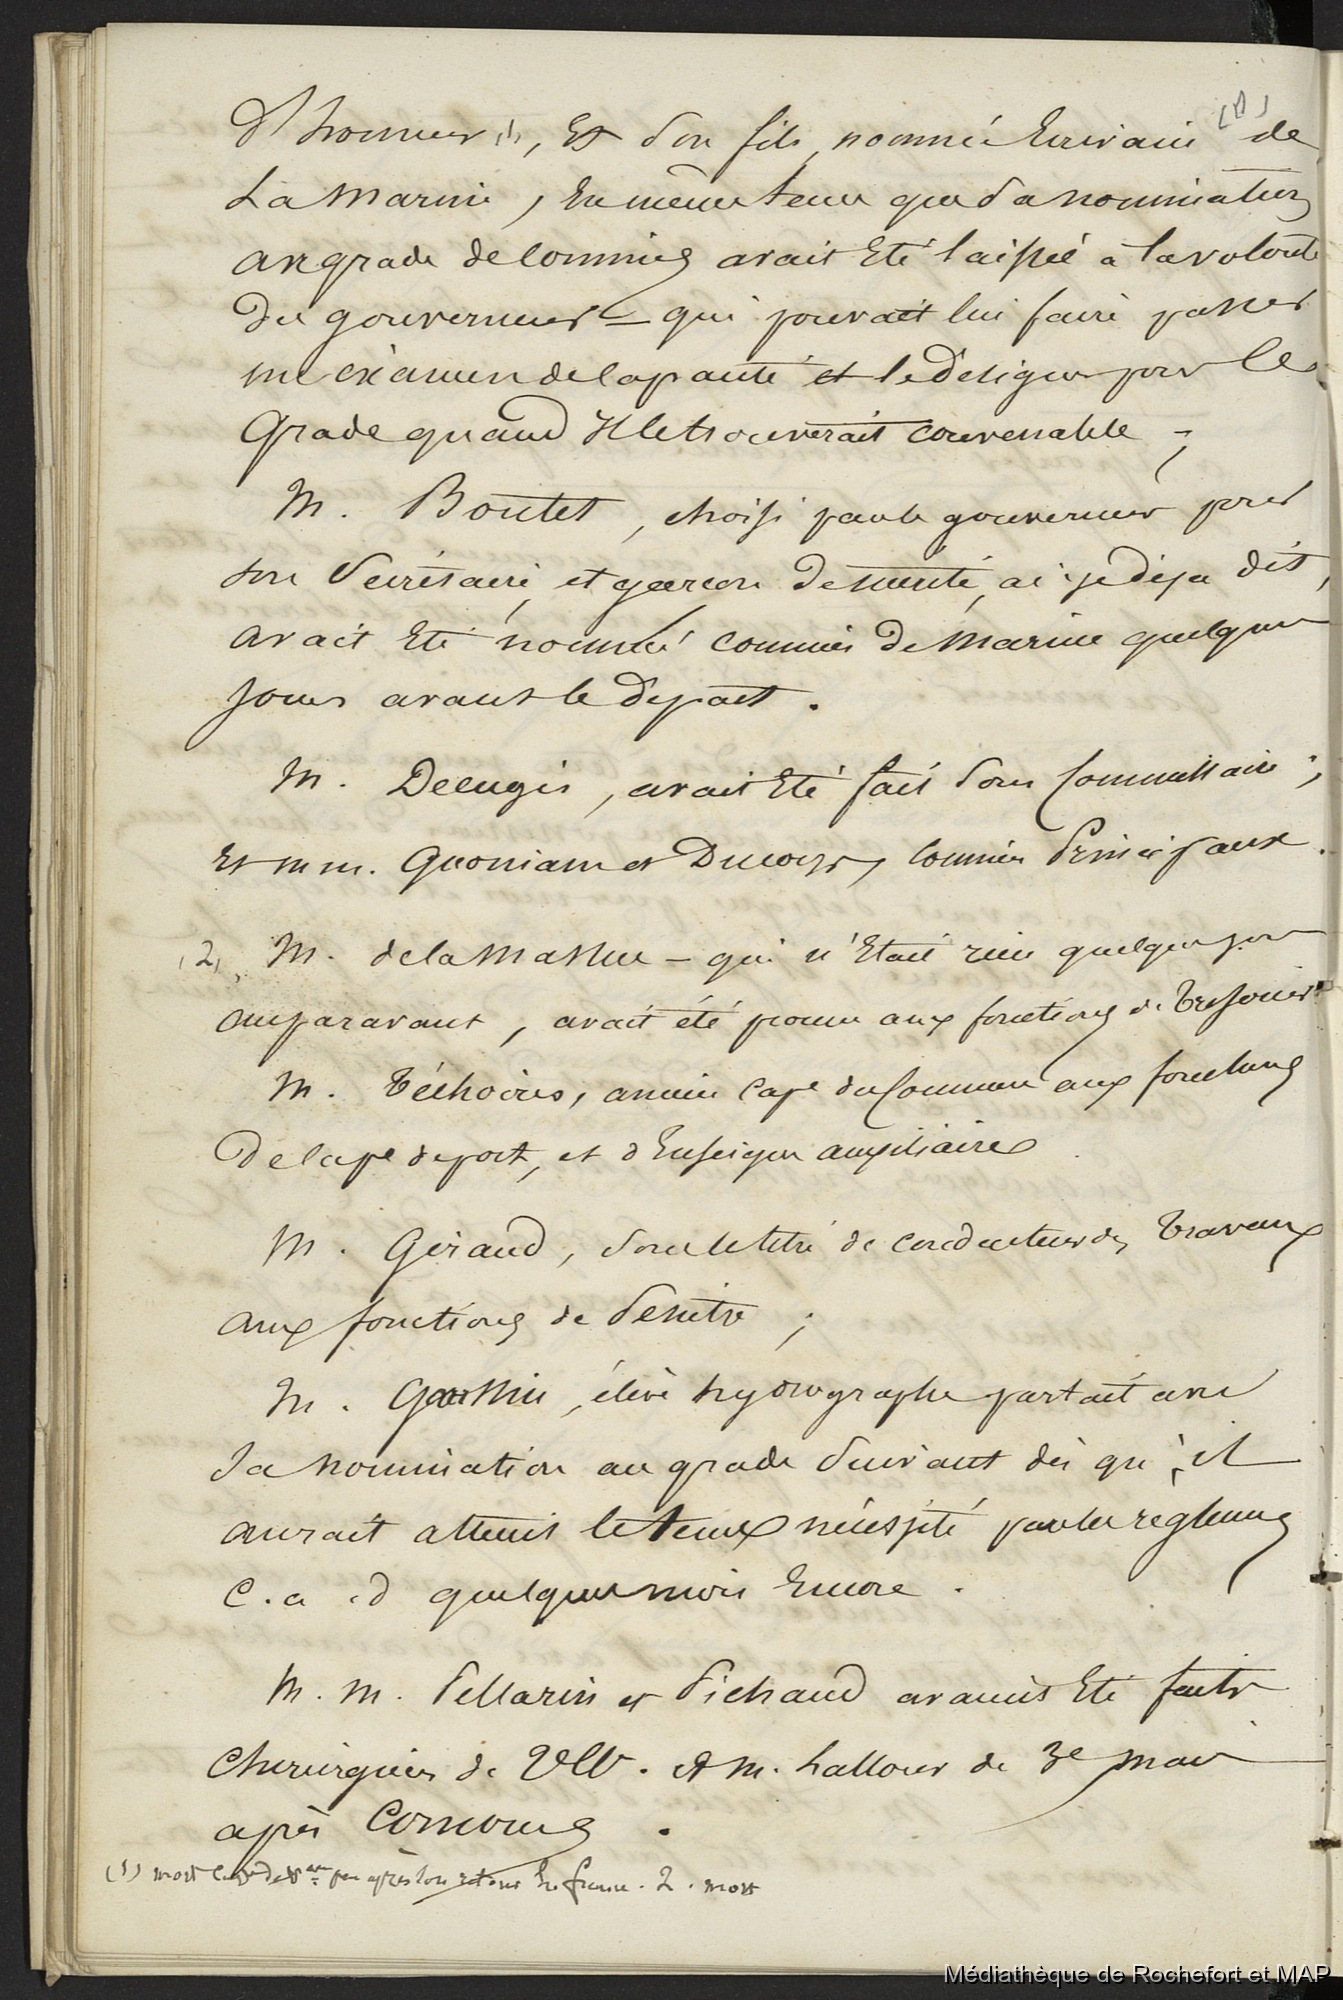 d'honneur (1), Et son fils, nommé Ecrivain (1) de
La Marine, En même tems que sa nomination
au grade de Commis avait Eté laissée à la volonté
Du gouverneur – qui pouvait lui faire passer
un examen de capacité et le désigner pour le
Grade quand Il le trouverait convenable ;
M. Boutet, choisi par le gouverneur pour
son Secrétaire, et garçon de mérite, ai-je déja dit,
avait Eté nommé commis de Marine quelques
jours avant le départ.
M. Deeugis, avait Eté fait Sous Commissaire ;
Et m m. Quoniam et Ducorps, Commis Principaux.
(2) M. de la Massue – qui n'Etait rien quelques jours
auparavant, avait été promu aux fonctions de Trésorier
M. Bérhoires, ancien Cape du Commerce aux fonctions
De Cape de port, et d'Enseigne auxiliaire
M. Giraud, sous le titre de conducteur des Travaux
aux fonctions de Peintre ;
M. Gaussin, élève hydrographe partait avec
sa nomination au grade Suivant dès qu'il
aurait atteint le tems nécessité par les règlemens
C. a. d quelques mois Encore.
M. M. Pellarin et Pichaud avaient Eté faits
Chirurgiens de 2e Cl. et M. Lallour de 3e mais
après Concours.
(1) mort peu après son retour En france. 2. mort
Médiathèque de Rochefort et MAP